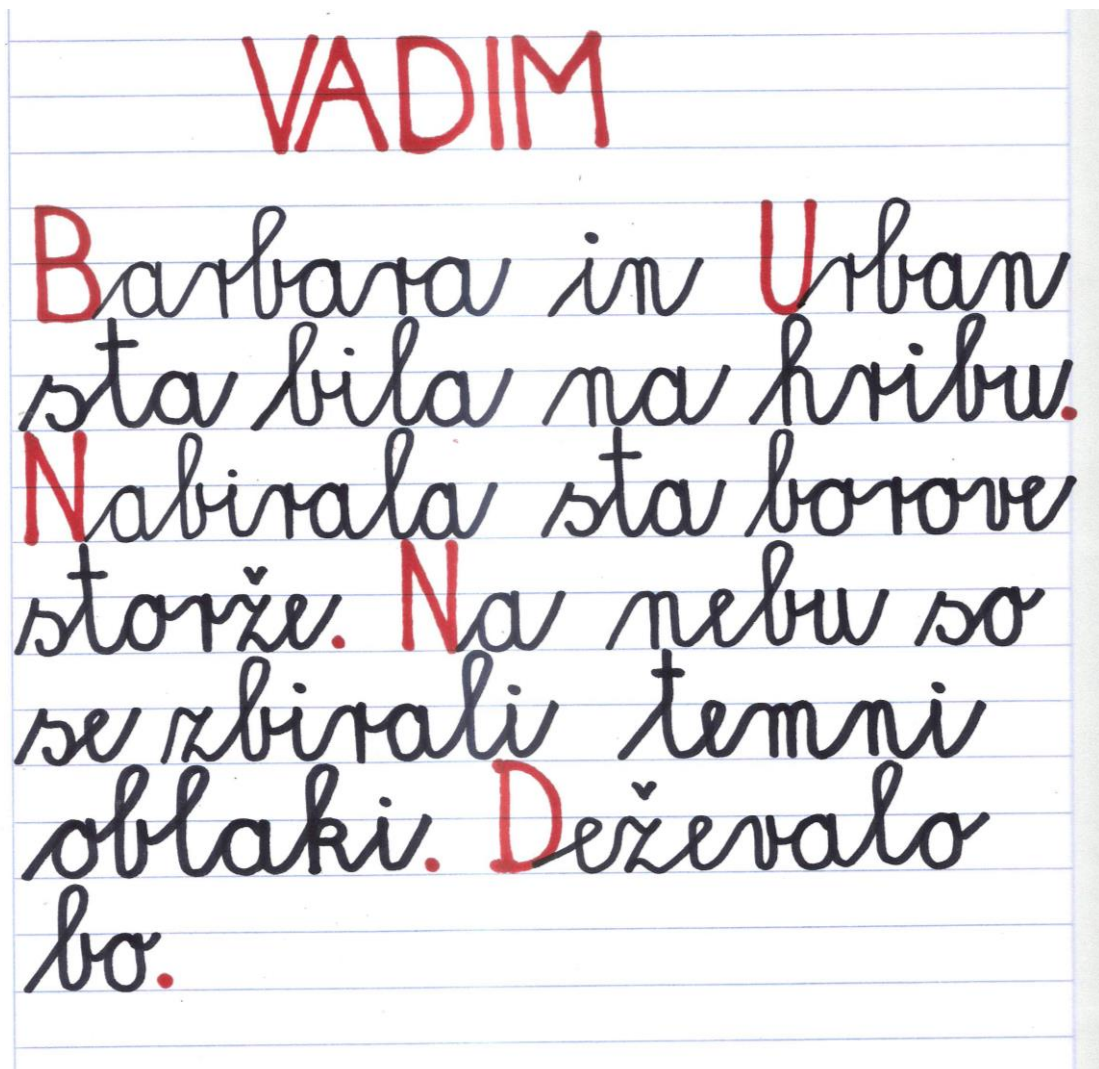 VADIM
Barbara in Urban
sta bila na hribu.
Nabirala sta borove
storže. Na nebu so
se zbirali temni
oblaki. Deževalo
bo.